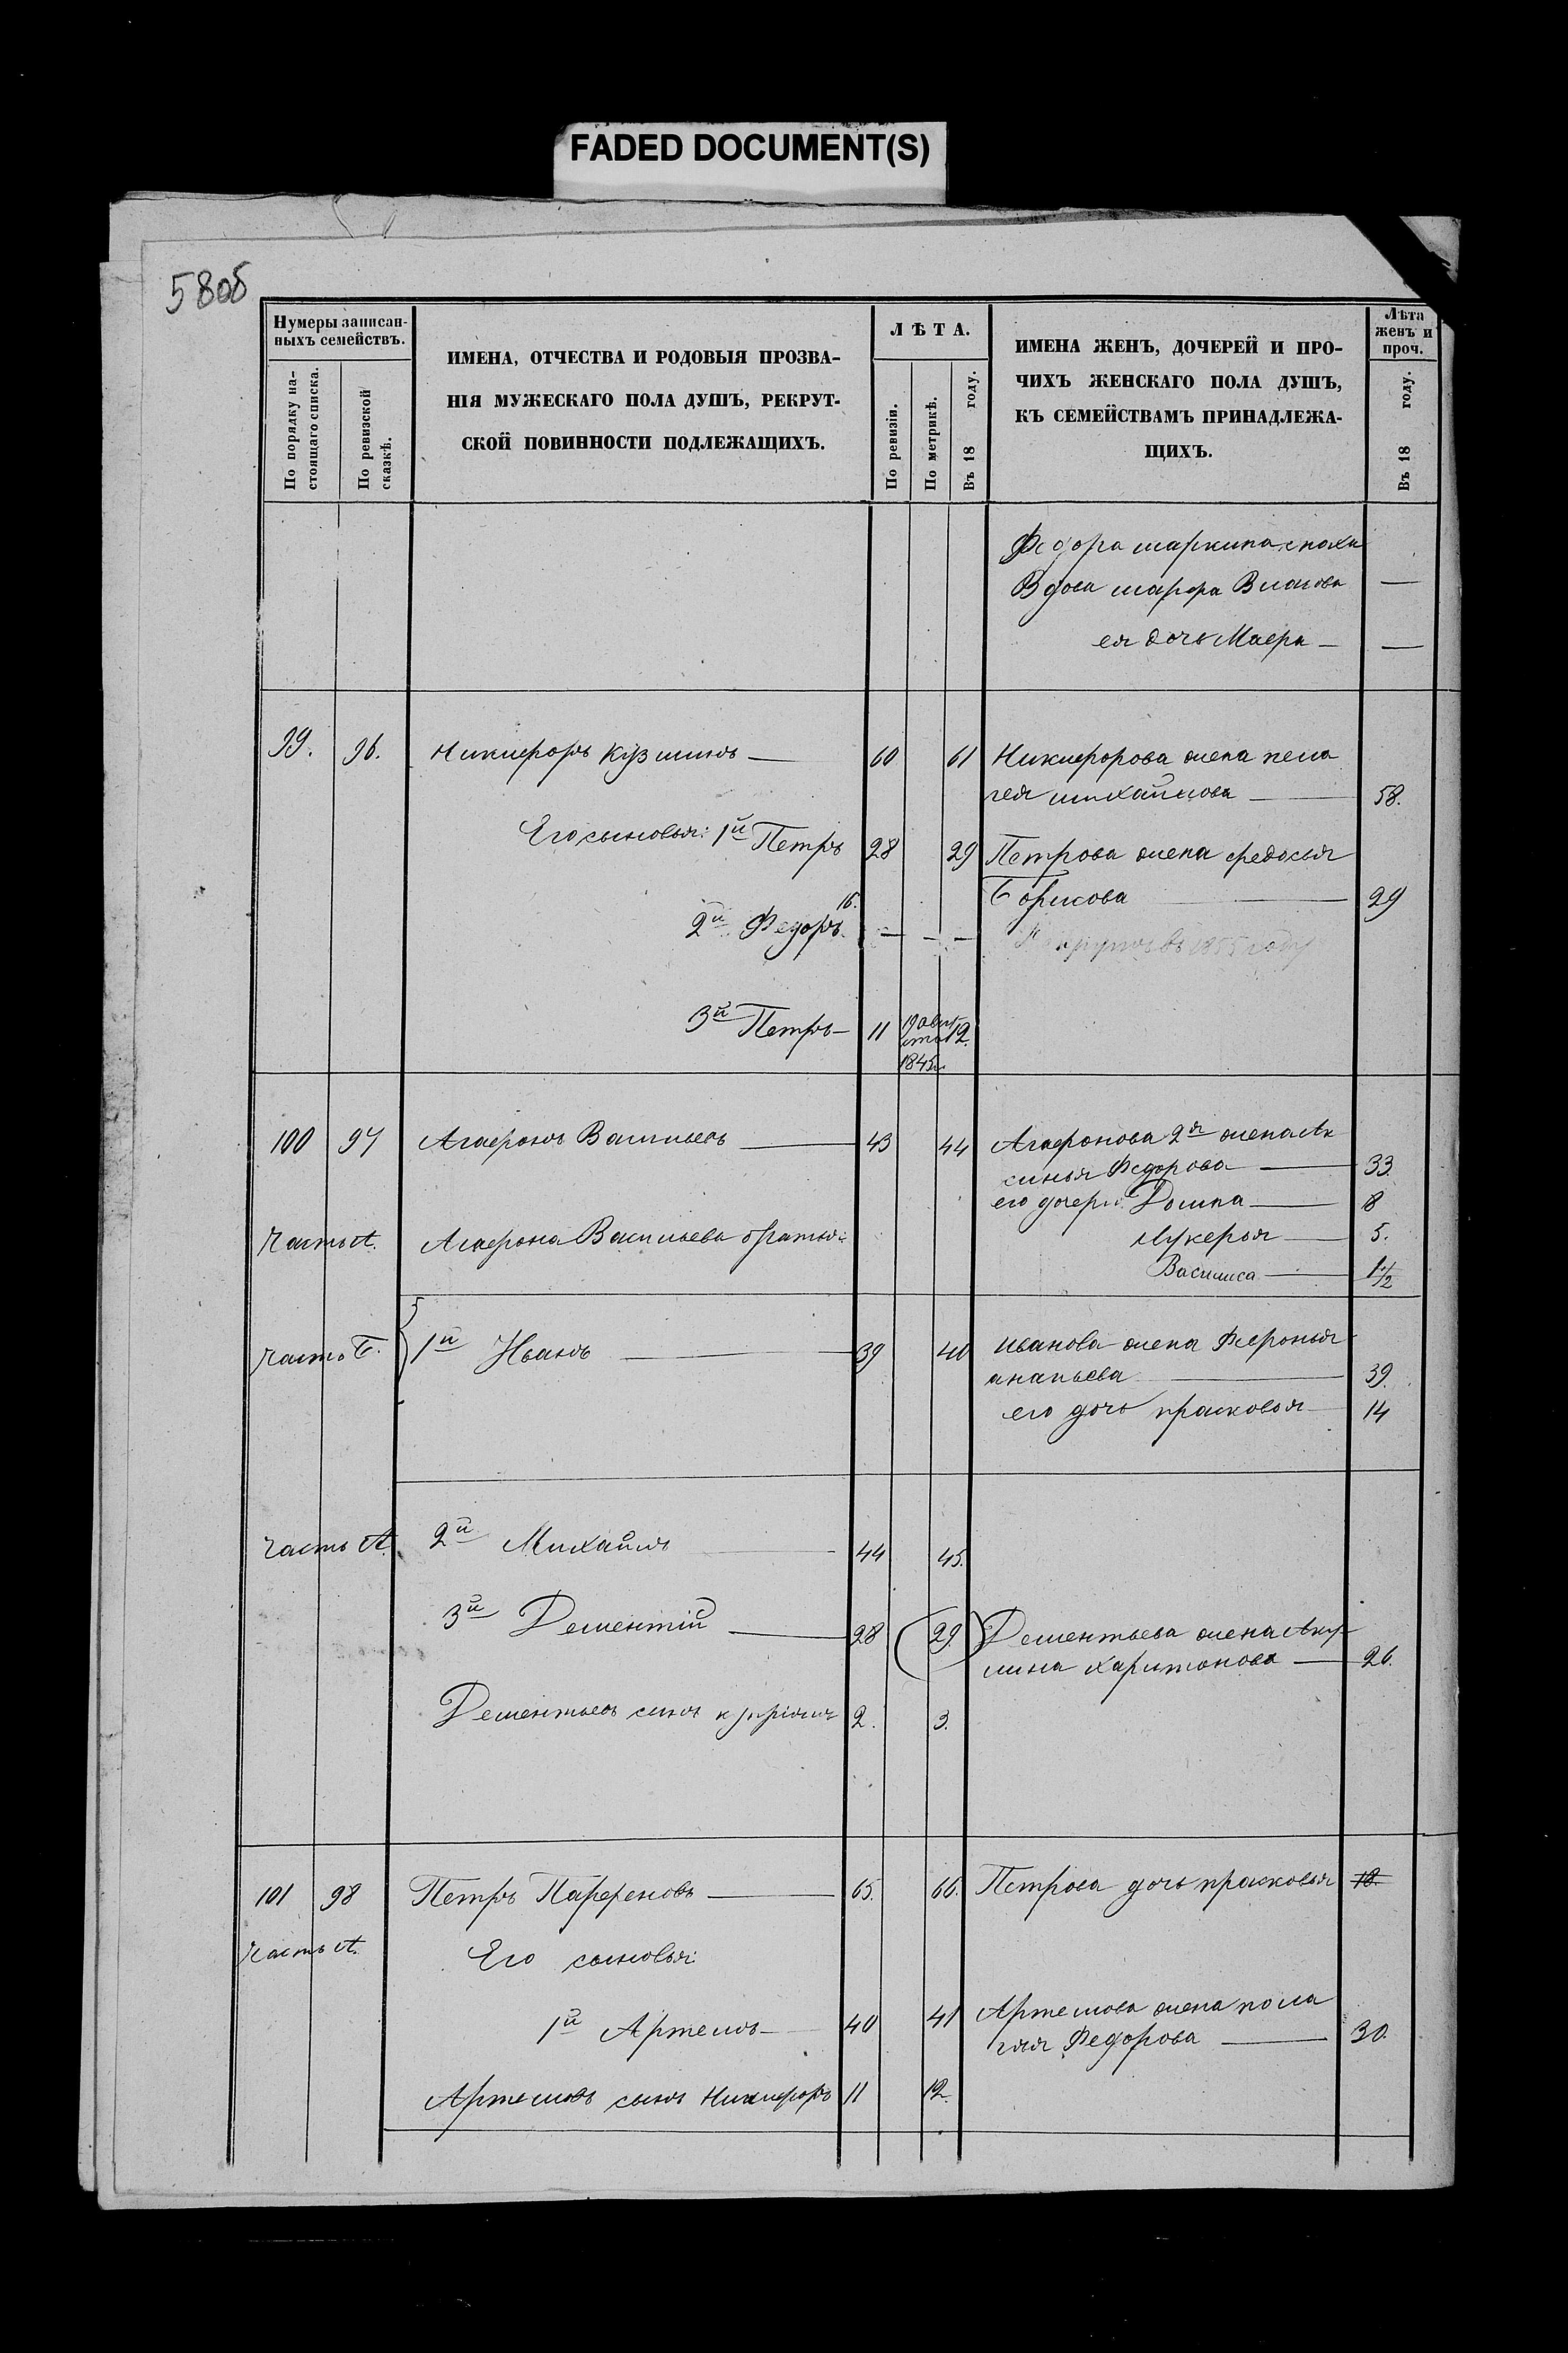 FADED DOCUMENT(S)
580б
Нумеры записан-
ныхъ семействъ.
По порядку на-
стоящаго списка.
По ревизской
сказкѣ.
ИМЕНА, ОТЧЕСТВА И РОДОВЫЯ ПРОЗВА-
НІЯ МУЖЕСКАГО ПОЛА ДУШЪ, РЕКРУТ-
СКОЙ ПОВИННОСТИ ПОДЛЕЖАЩИХЪ.
ЛѢТА.
По ревизіи.
По метрикѣ.
Въ 18 году.
ИМЕНА ЖЕНЪ, ДОЧЕРЕЙ И ПРО-
ЧИХЪ ЖЕНСКАГО ПОЛА ДУШЪ,
КЪ СЕМЕЙСТВАМЪ ПРИНАДЛЕЖА-
ЩИХЪ.
Лѣта
женъ и
проч.
Въ 18 году.
Федора маркина сноха
Вдова марфа Власова —
ея дочь Мавра — —
99. 96. Никифоръ Кузминъ — 60 61 Никифорова жена пела
гея михайлова — 58.
Его сыновья: 1й Петръ 28 29 Петрова жена федосья
Борисова — 29
2й Федоръ — — — въ 1855 году
3й Петръ — 11 19 авгу
ста 12.
1845.
100 97 Агафонъ Васильевъ — 43 44 Агафонова 2я жена Ак
синья Федорова — 33.
его дочери: Домна — 8
часть А. Агафона Васильева братья: Лукерья — 5.
Василиса — 1 1/2
часть Б. 1й Иванъ — 39 40 иванова жена Февронья
ананьева — 39.
его дочь прасковья — 14
часть А. 2й Михайло — 44 45.
3й Дементій — 28 (29) Дементьева жена Аку
лина харитонова — 26.
Дементьевъ сынъ купріянъ 2. 3.
101 98 Петръ Парфеновъ — 65. 66. Петрова дочь прасковья 18.
часть А. Его сыновья:
1й Артемъ — 40 41 Артемова жена пела
гея Федорова — 30.
Артемовъ сынъ Никифоръ 11 12.